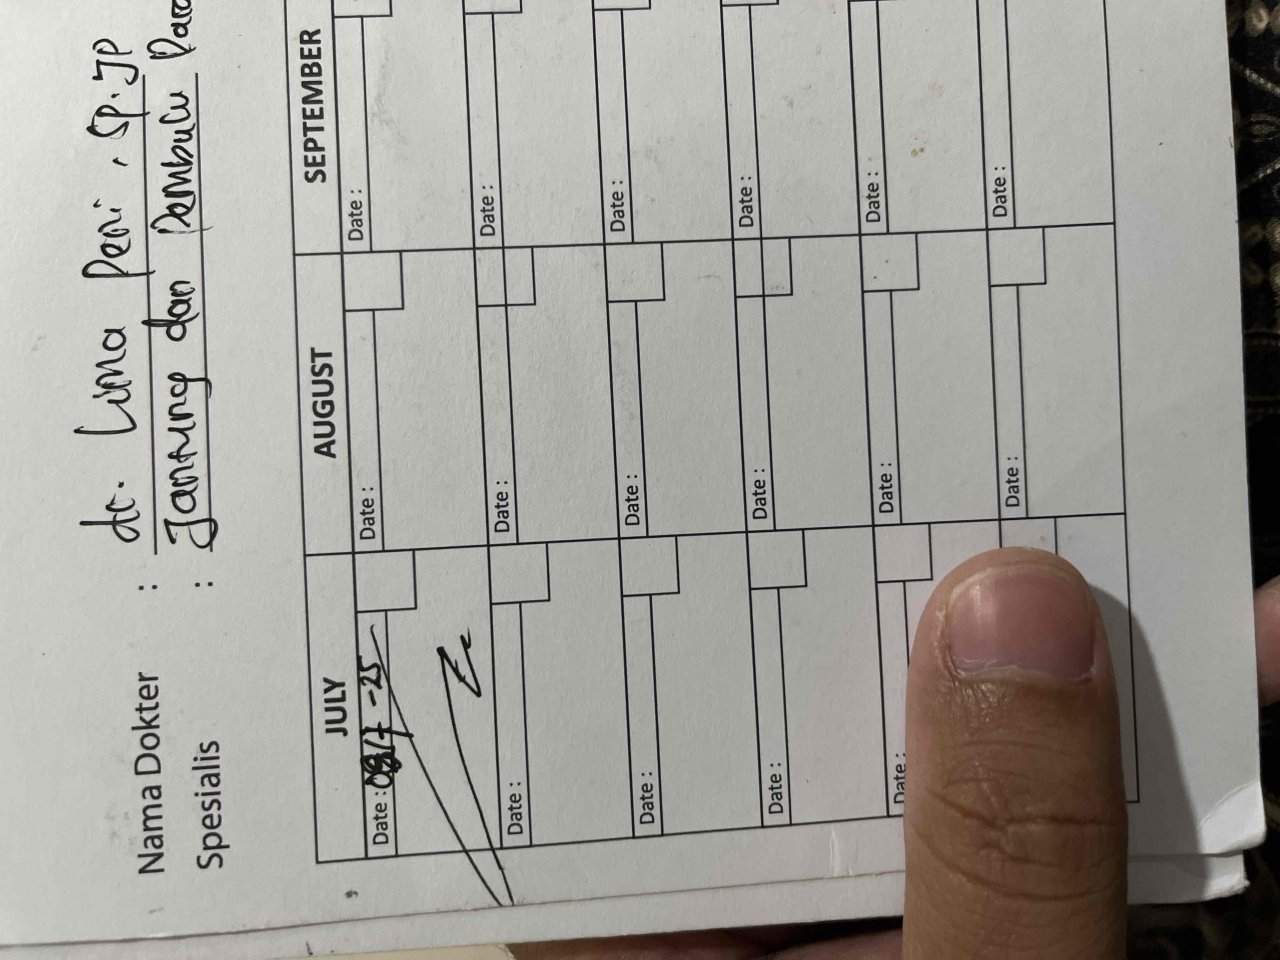 Nama Dokter : dr. Luna Peri . SP.JP
Spesialis : Jantung dan Pembulu
JULY AUGUST SEPTEMBER
Date : 08/7 -25 Date : Date :
Date : Date : Date :
Date : Date : Date :
Date : Date : Date :
Date : Date : Date :
Date : Date :